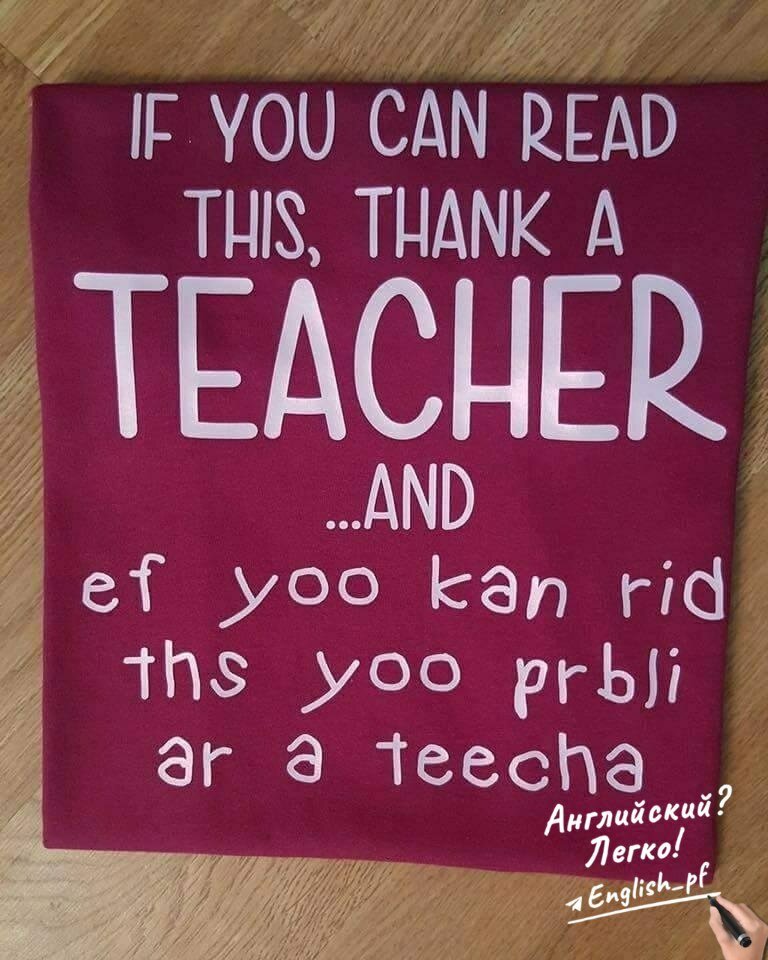 IF YOU CAN READ
THIS, THANK A
TEACHER
...AND
ef yoo kan rid
ths yoo prbli
ar a teecha
Английский?
Легко!
English_pf